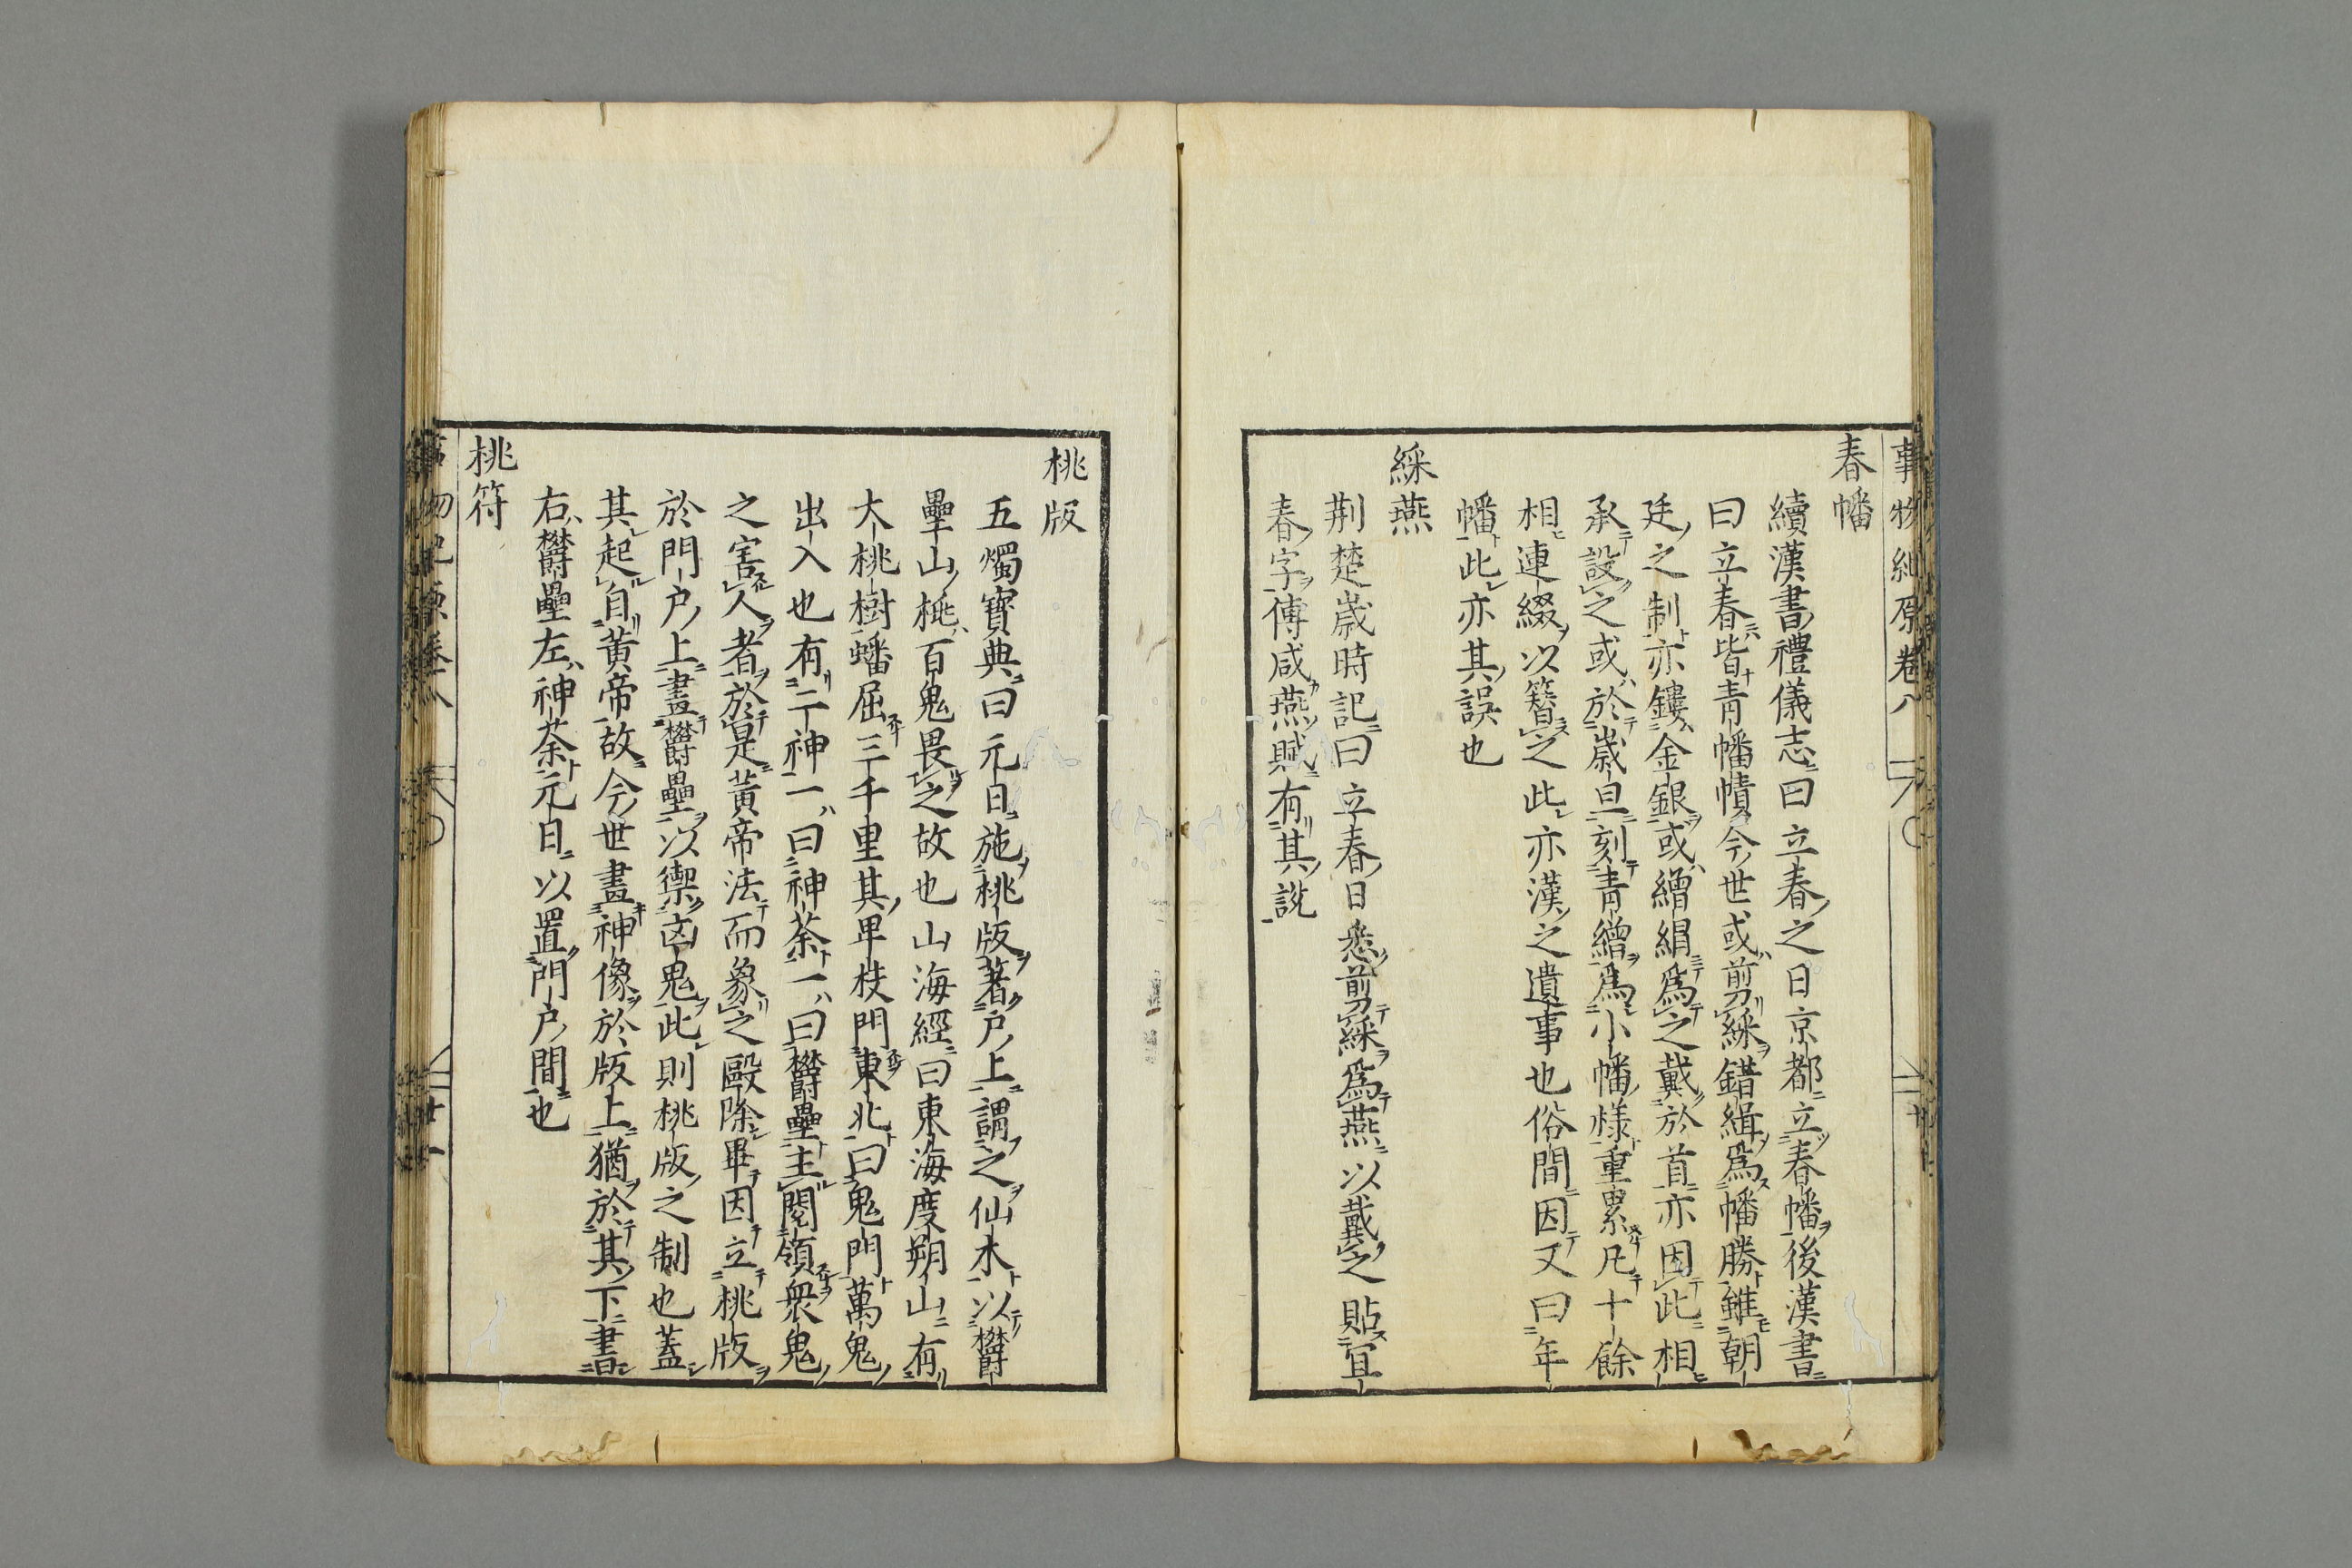 事物紀原卷八
春幡
續漢書禮儀志曰立春之日京都立春幡後漢書
曰立春皆青幡幘今世或剪綵錯緝爲幡勝雖朝
廷之制亦鏤金銀或繒絹爲之戴於首亦因此相
承設之或於歲旦刻青繒爲小幡様重累凡十餘
相連綴以簪之此亦漢之遺事也俗間因又曰年
幡此亦其誤也
綵燕
荆楚歲時記曰立春日悉剪綵爲燕以戴之貼宜
春字傅咸燕賦有其說
桃版
五燭寶典曰元日施桃版著户上謂之仙木以欝
壘山桃百鬼畏之故也山海經曰東海度朔山有
大桃樹蟠屈三千里其卑枝門東北曰鬼門萬鬼
出入也有二神一曰神荼一曰欝壘主閱領衆鬼
之害人者於是黃帝法而象之毆除畢因立桃版
於門户上畫欝壘以禦凶鬼此則桃版之制也蓋
其起自黃帝故今世畫神像於版上猶於其下書
右欝壘左神荼元日以置門户間也
桃符